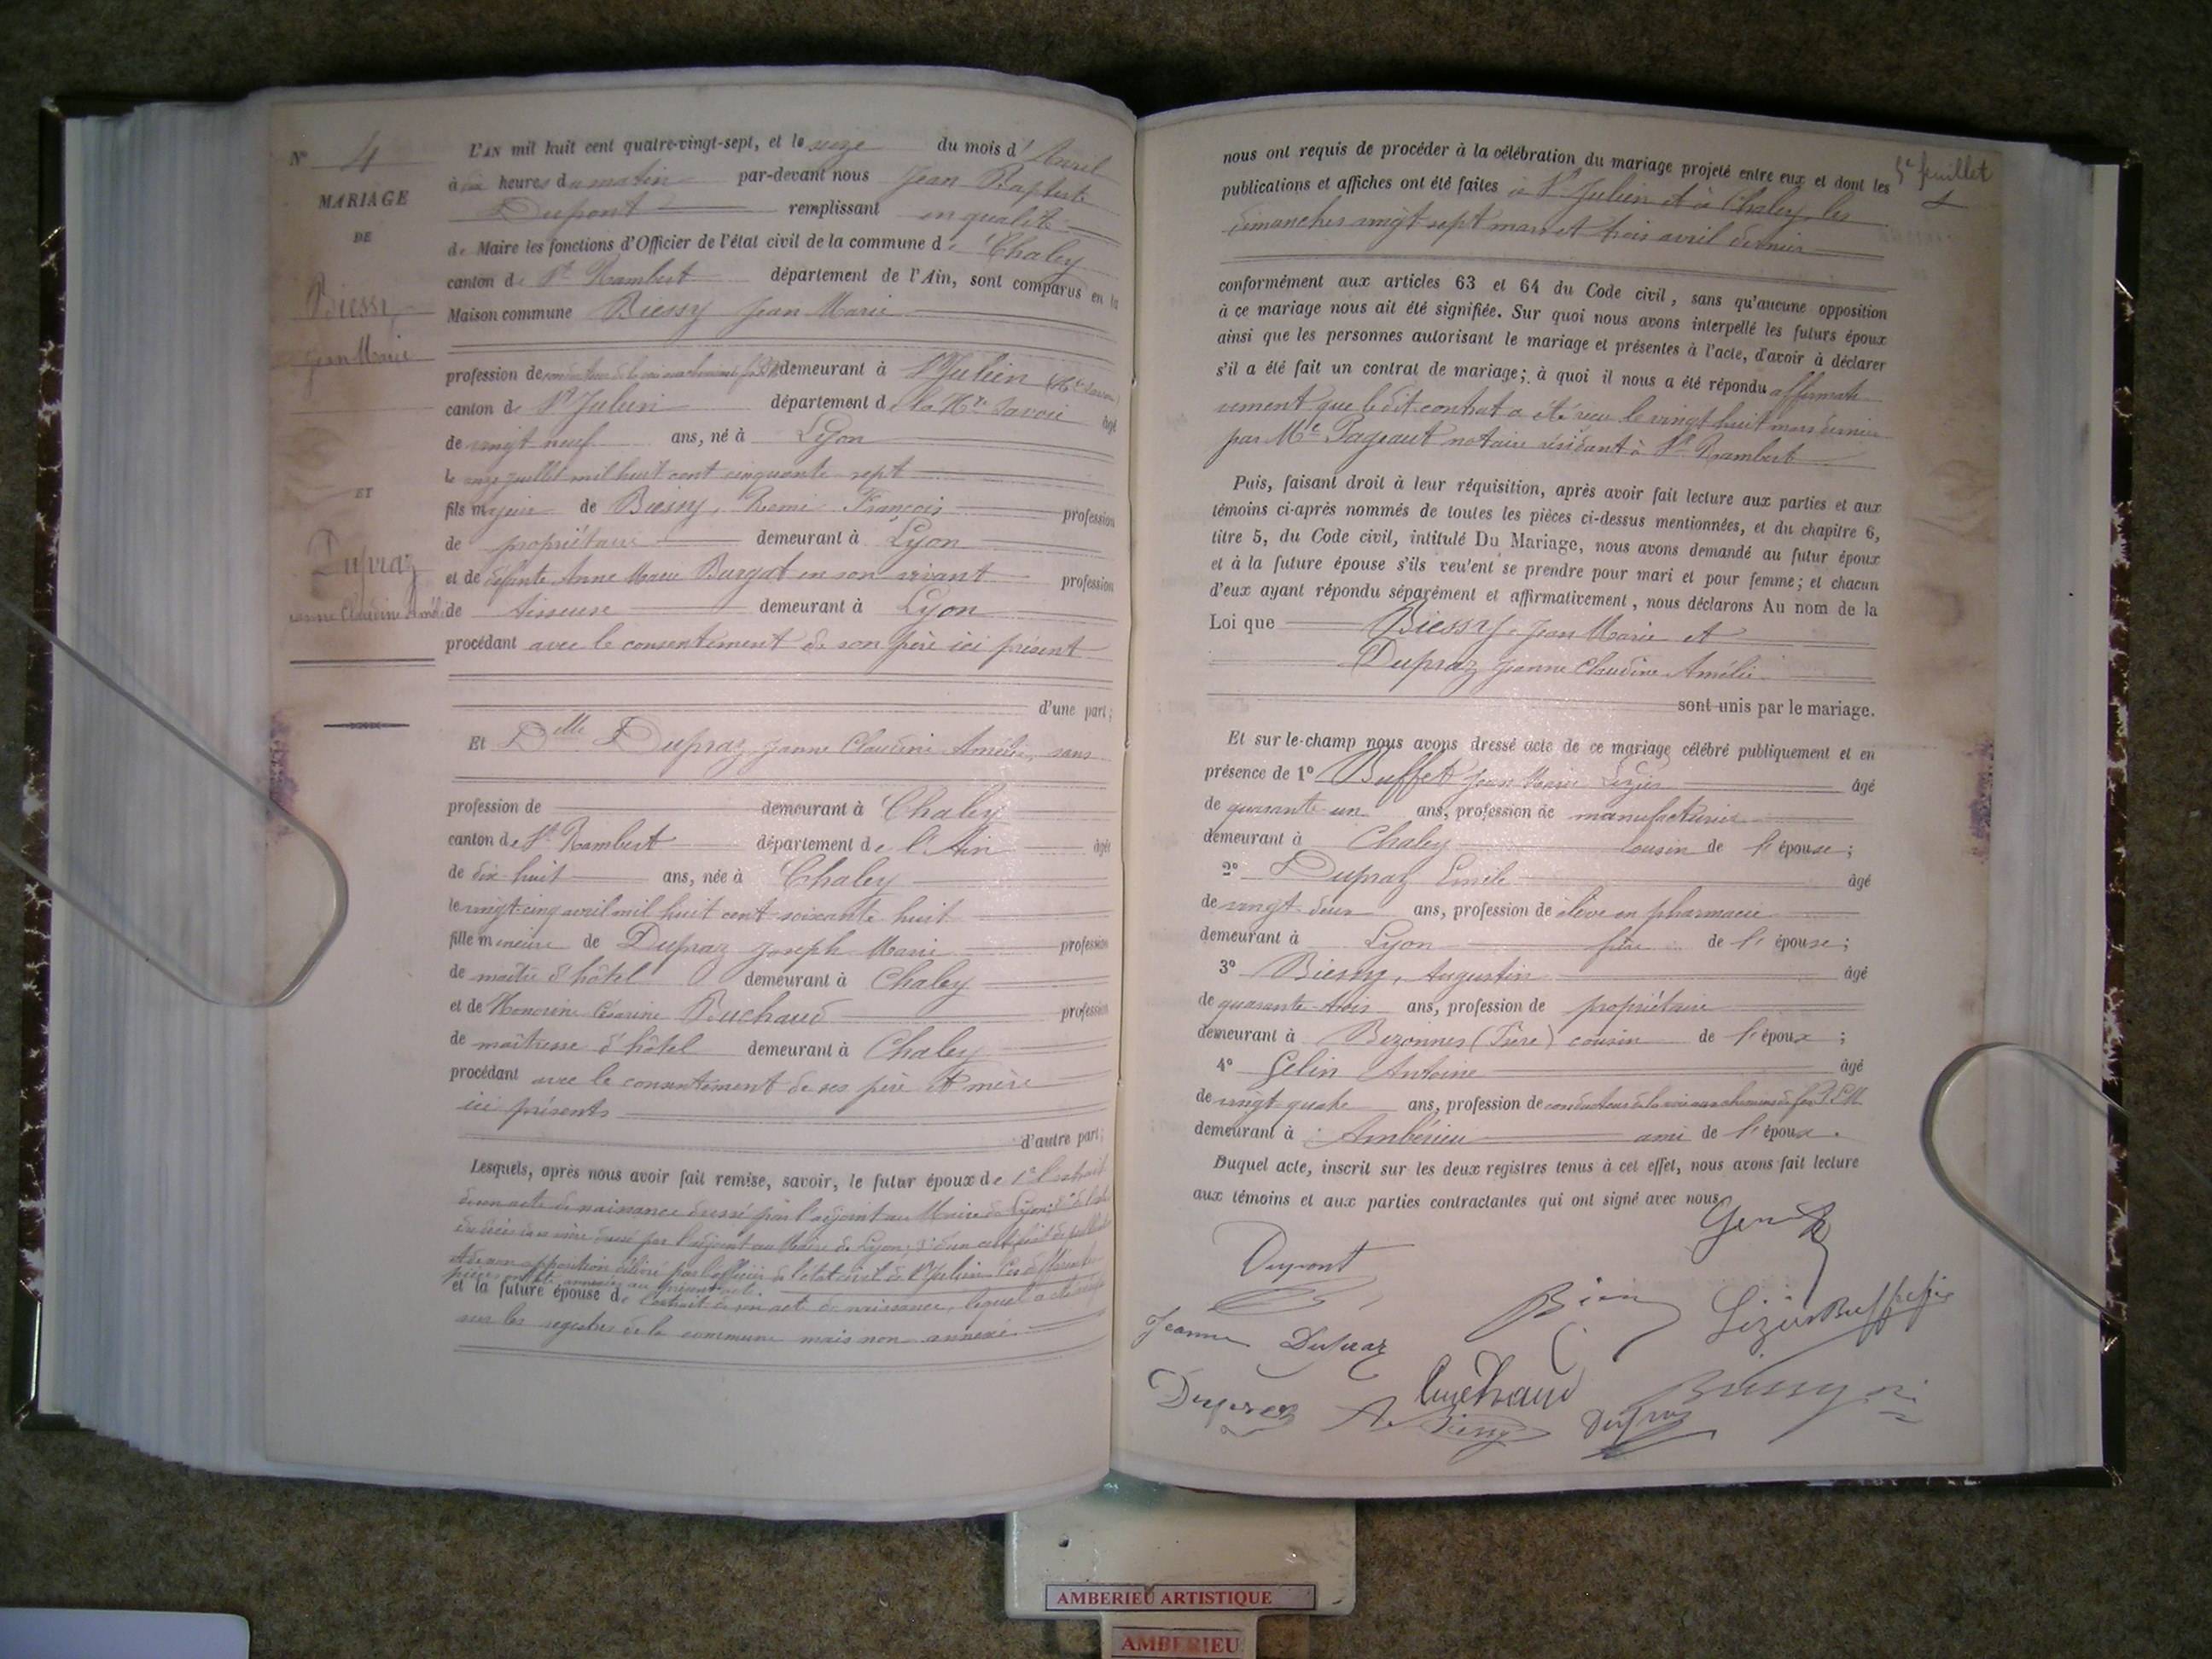 N° 4
MARIAGE
DE
Biessy
Jean Marie
ET
Dupraz
Jeanne Claudine Amélie
L'AN mil huit cent quatre-vingt-sept, et le seize du mois d' Avril
à dix heures du matin par-devant nous Jean Baptiste
Dupont remplissant en qualité
de Maire les fonctions d'Officier de l'état civil de la commune de Chaley
canton de St Rambert département de l'Ain, sont comparus en la
Maison commune Biessy Jean Marie
profession de conducteur de la voie aux chemins de fer demeurant à St Julien (Hte Savoie)
canton de St Julien département de la Hte Savoie âgé
de vingt neuf ans, né à Lyon
le onze juillet mil huit cent cinquante sept
fils majeur de Biessy, Remi François profession
de propriétaire demeurant à Lyon
et de défunte Anne Marie Burgat en son vivant profession
de tisseuse demeurant à Lyon
procédant avec le consentement de son père ici présent
d'une part;
Et Delle Dupraz Jeanne Claudine Amélie, sans
profession de demeurant à Chaley
canton de St Rambert département de l'Ain âgée
de dix huit ans, née à Chaley
le vingt-cinq avril mil huit cent soixante huit
fille mineure de Dupraz Joseph Marie profession
de maître d'hôtel demeurant à Chaley
et de Honorine Césarine Buchaud profession
de maîtresse d'hôtel demeurant à Chaley
procédant avec le consentement de ses père et mère
ici présents
d'autre part;
Lesquels, après nous avoir fait remise, savoir, le futur époux de 1° l'extrait
de son acte de naissance dressé par l'adjoint au Maire de Lyon; 2° de l'acte
de décès de sa mère dressé par l'adjoint au Maire de Lyon; 3° d'un certificat de publication
et de non opposition délivré par l'officier de l'état civil de St Julien. Ces différentes
pièces ont été annexées au présent acte.
et la future épouse de l'extrait de son acte de naissance, lequel a été
sur les registres de la commune mais non annexé.
5e feuillet
nous ont requis de procéder à la célébration du mariage projeté entre eux et dont les
publications et affiches ont été faites à St Julien et à Chaley, les
dimanches vingt sept mars et trois avril dernier
conformément aux articles 63 et 64 du Code civil, sans qu'aucune opposition
à ce mariage nous ait été signifiée. Sur quoi nous avons interpellé les futurs époux
ainsi que les personnes autorisant le mariage et présentes à l'acte, d'avoir à déclarer
s'il a été fait un contrat de mariage; à quoi il nous a été répondu affirmati
vement que le dit contrat a été reçu le vingt huit mars dernier
par Me Pageaut notaire résidant à St Rambert
Puis, faisant droit à leur réquisition, après avoir fait lecture aux parties et aux
témoins ci-après nommés de toutes les pièces ci-dessus mentionnées, et du chapitre 6,
titre 5, du Code civil, intitulé Du Mariage, nous avons demandé au futur époux
et à la future épouse s'ils veulent se prendre pour mari et pour femme; et chacun
d'eux ayant répondu séparément et affirmativement, nous déclarons Au nom de la
Loi que Biessy Jean Marie et
Dupraz Jeanne Claudine Amélie
sont unis par le mariage.
Et sur-le-champ nous avons dressé acte de ce mariage célébré publiquement et en
présence de 1° Buffet Jean Marie Lézin âgé
de quarante un ans, profession de manufacturier
demeurant à Chaley cousin de l'épouse;
2° Dupraz Emile âgé
de vingt-deux ans, profession de élève en pharmacie
demeurant à Lyon frère de l'épouse;
3° Biessy, Augustin âgé
de quarante-trois ans, profession de propriétaire
demeurant à Bezonnes (Isère) cousin de l'époux;
4° Gelin Antoine âgé
de vingt-quatre ans, profession de conducteur de la voie aux chemins de fer P.L.M
demeurant à Ambérieu ami de l'époux.
Duquel acte, inscrit sur les deux registres tenus à cet effet, nous avons fait lecture
aux témoins et aux parties contractantes qui ont signé avec nous
Dupont
Jeanne Dupraz
Buchaud
A Biessy
Dupraz
Biessy
AMBERIEU ARTISTIQUE
AMBERIEU